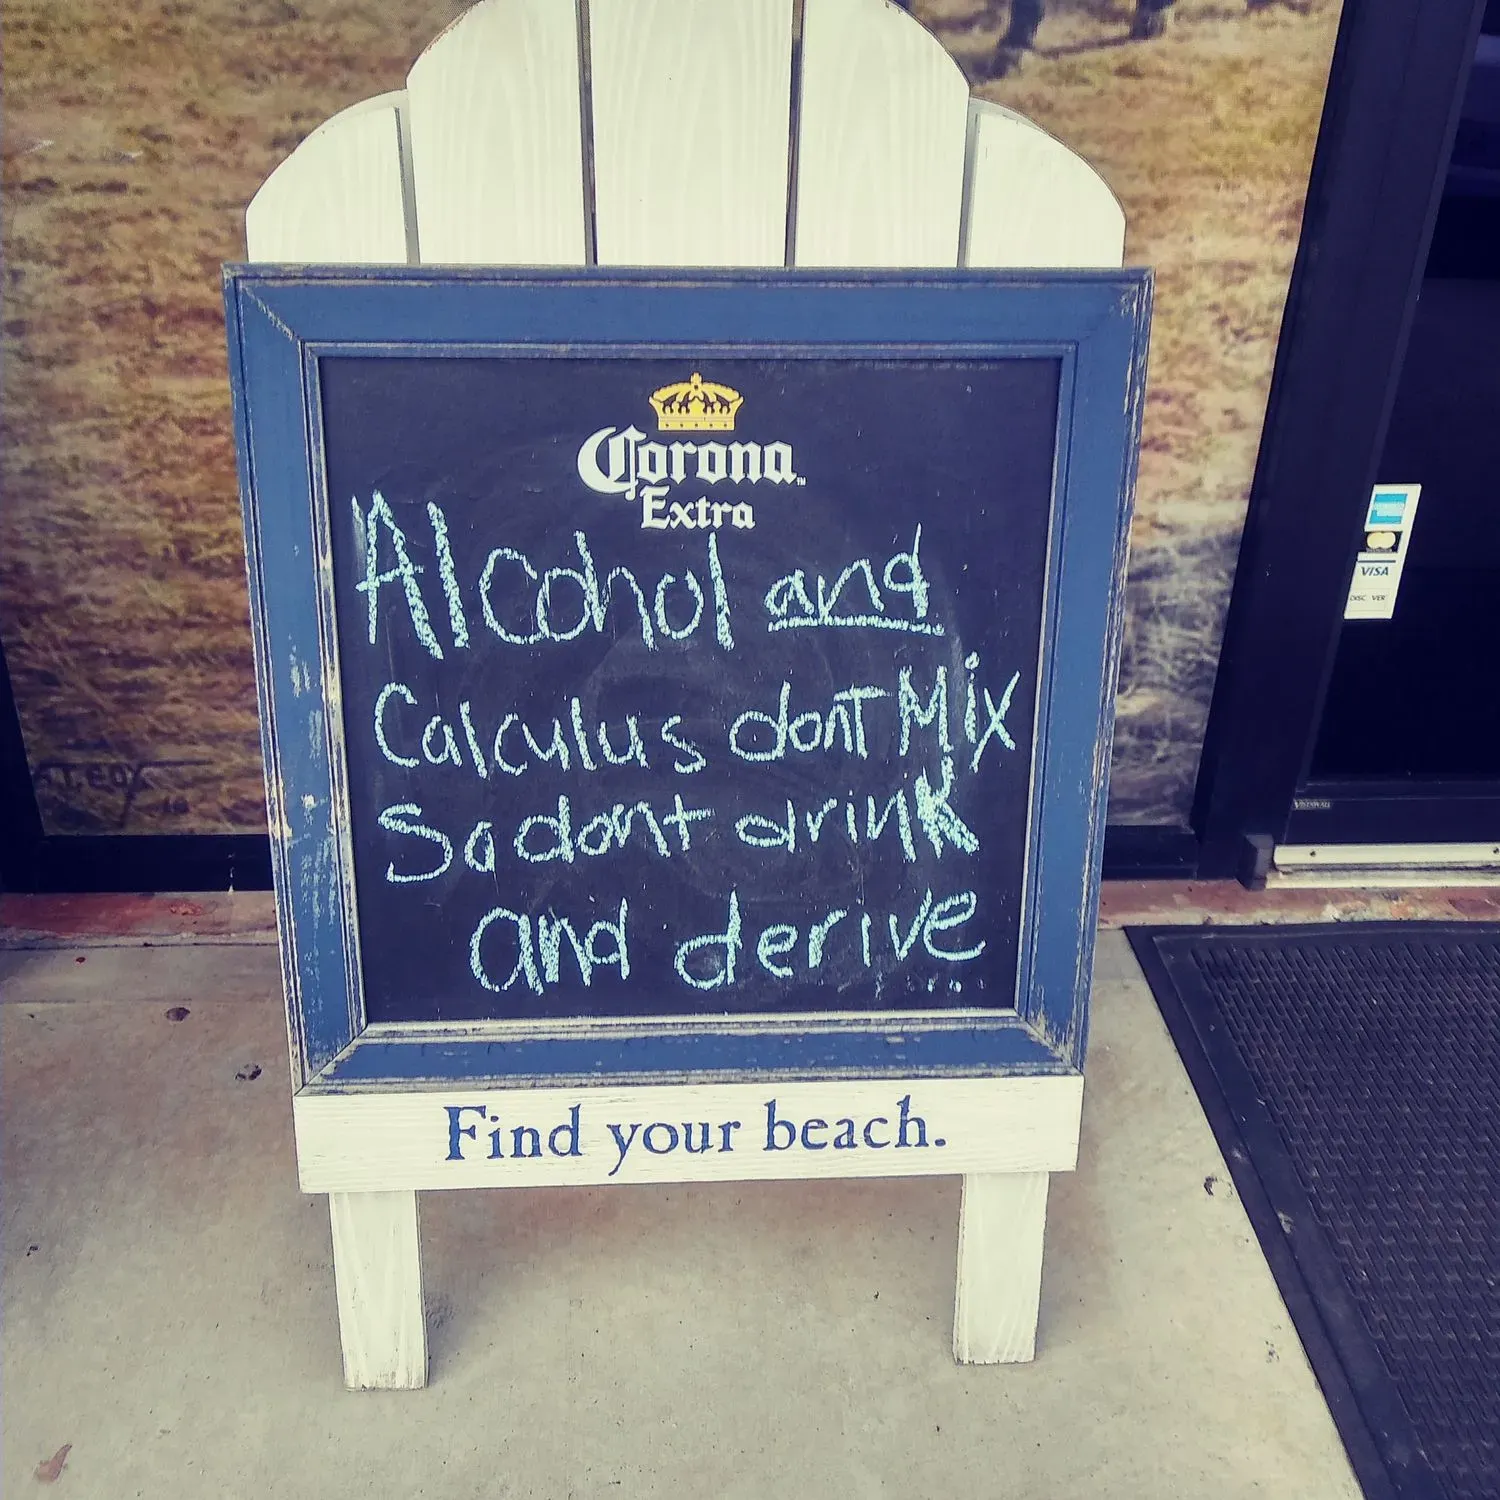 Corona
Extra
Alcohol and
Calculus dont Mix
So dont drink
and derive..
Find your beach.
VISA
DISC VER